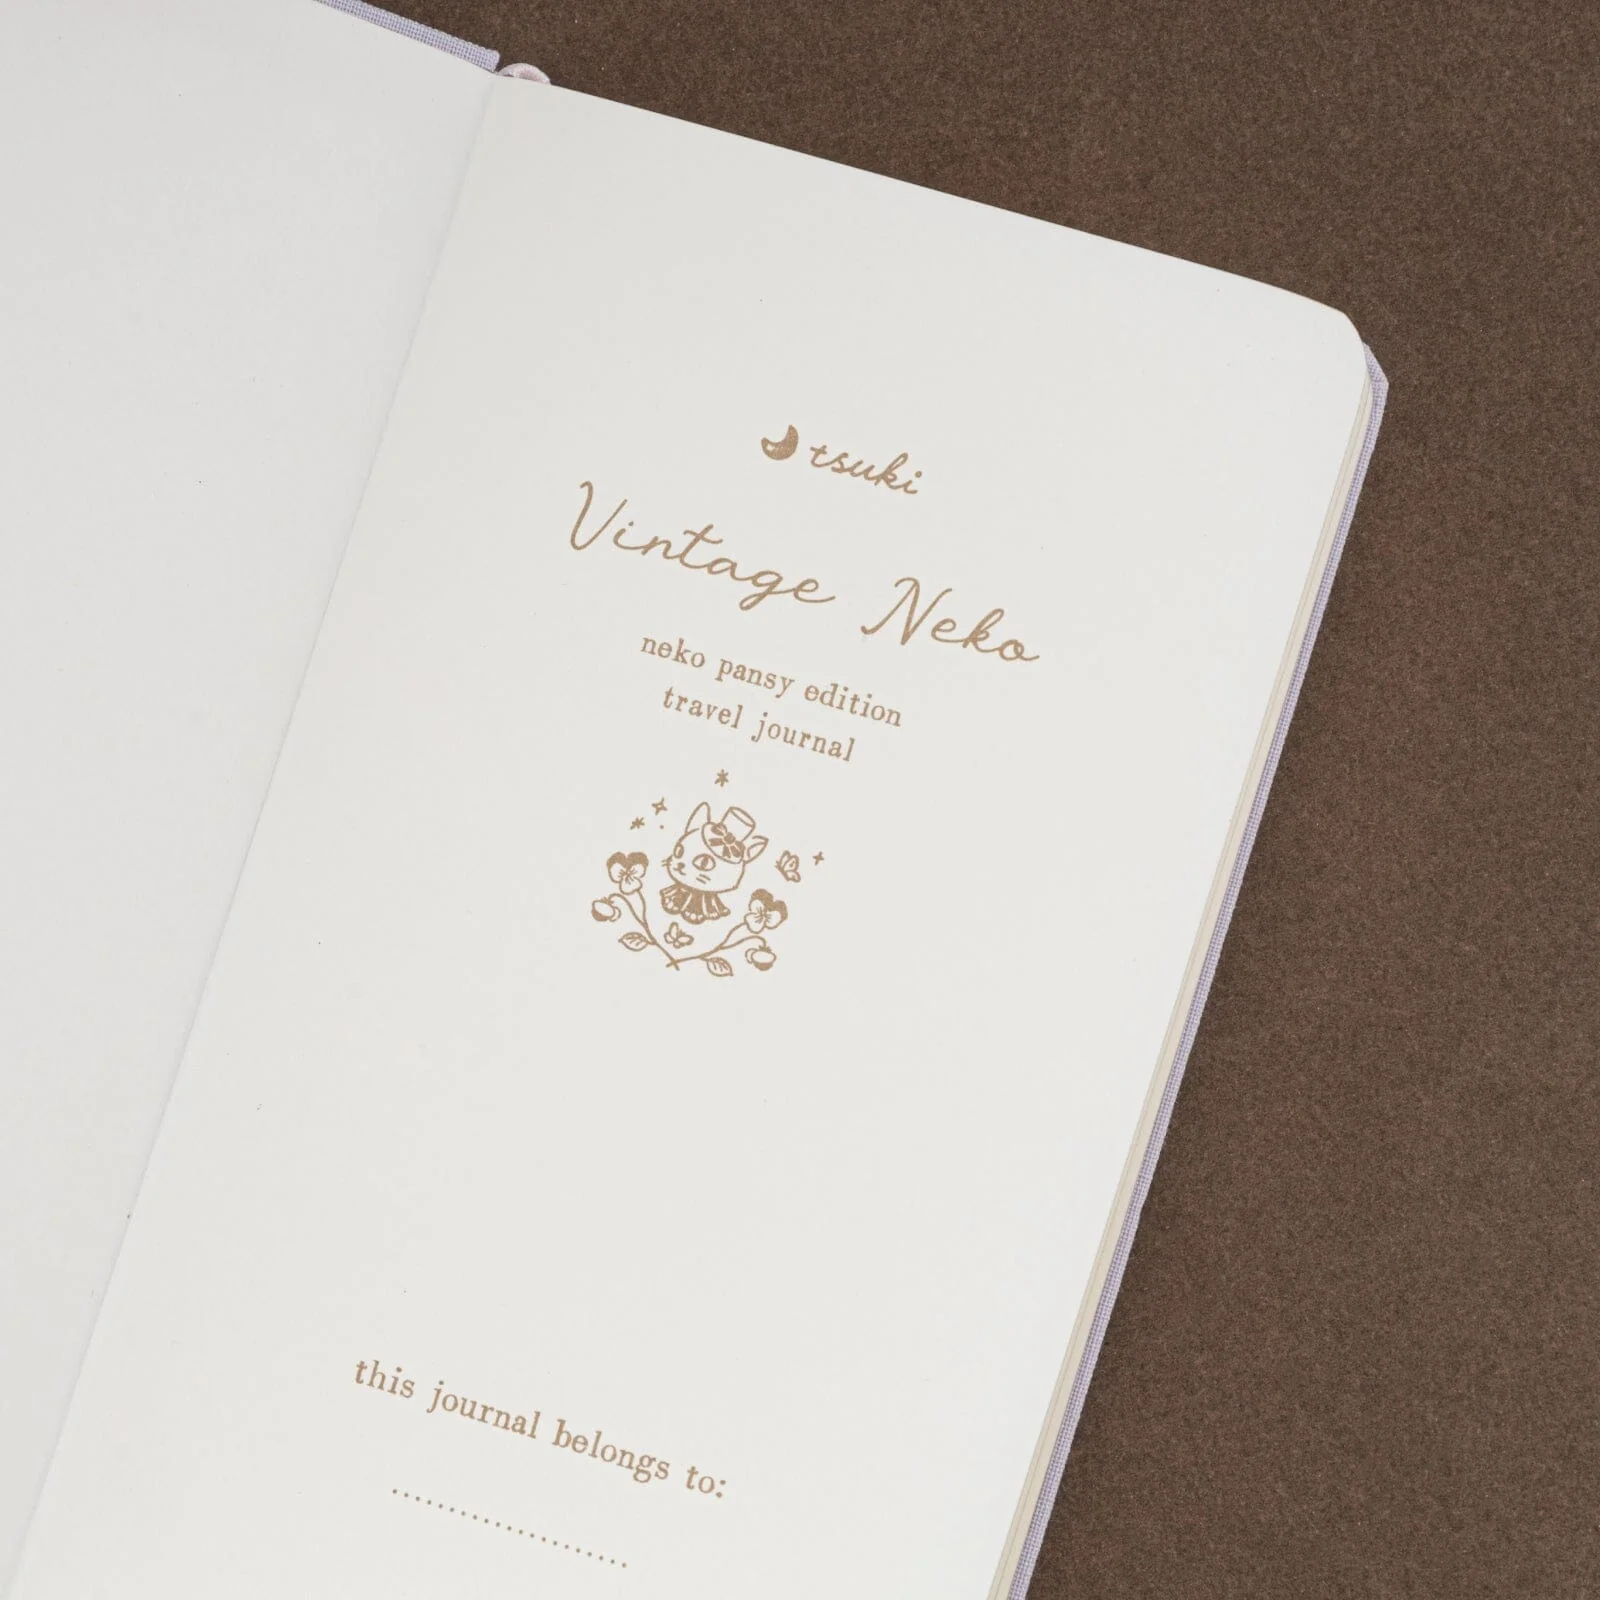 tsuki
Vintage Neko
neko pansy edition
travel journal
this journal belongs to: